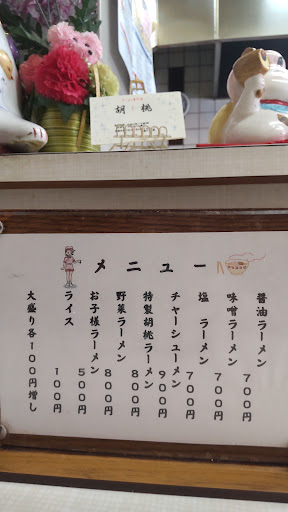 胡桃
メニュー
醤油ラーメン 700円
味噌ラーメン 700円
塩 ラーメン 700円
チャーシューメン 900円
特製胡桃ラーメン 800円
野菜ラーメン 800円
お子様ラーメン 500円
ライス 100円
大盛り各100円増し